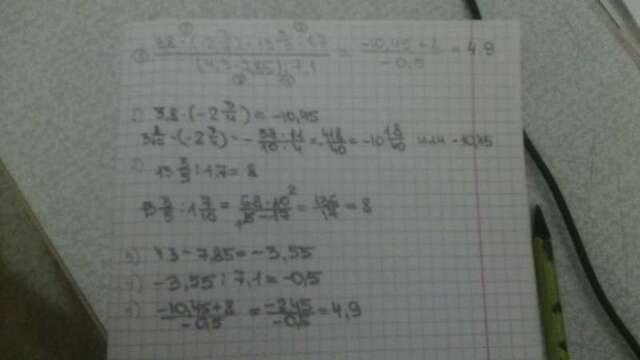 3,8 · (-2 3/4) + 13 3/5 : 1,7 / (4,3 - 7,85) : 7,1 = -10,45 + 8 / -0,5 = 4,9
1) 3,8 · (-2 3/4) = -10,45
3 8/10 · (-2 3/4) = - 38 · 11 / 10 · 4 = - 418/40 = -10 18/40 или -10,45
2) 13 3/5 : 1,7 = 8
13 3/5 : 1 7/10 = 68 · 10 2 / 1 5 · 17 = 136/17 = 8
3) 4,3 - 7,85 = -3,55
4) -3,55 : 7,1 = -0,5
5) -10,45 + 8 / -0,5 = -2,45 / -0,5 = 4,9